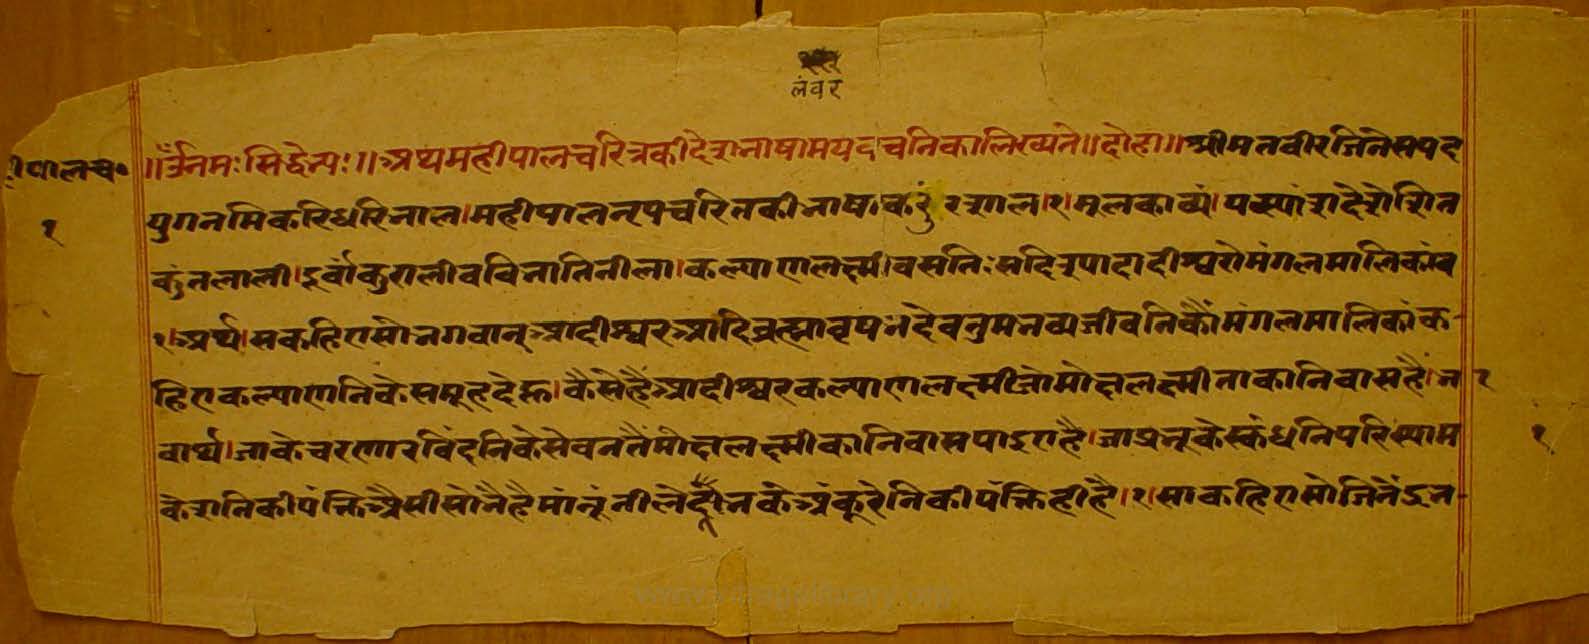 लंवर
महीपालच०
॥ ॐ नमः सिद्धेभ्यः ॥ अथ महीपालचरित्रकी देशभाषामय वचनिका लिख्यते ॥ दोहा ॥ श्रीमतवीरजिनेसपद
१
युगनमिकरिधरिभाल । महीपालनृपचरितकी भाषा करुं रसाल । १ । मूलकाव्यं । यस्यांशदेशेशित
कुंतलाली । दूर्वांकुरालीवविभातिनीला । कल्याणलक्ष्मीवसतिः सदिश्यादादीश्वरोमंगलमालिकांव
१ । अर्थ । सकहिएसोभगवान्आदीश्वरआदिब्रह्मावृषभदेवतुमभव्यजीवनिकौंमंगलमालिकांक-
हिएकल्याणनिकेसमूहदेऊ । कैसेहैंआदीश्वरकल्याणलक्ष्मीजोमोक्षलक्ष्मीताकानिवासहैं । भ
१
वार्थ । जाकेचरणारविंदनिकेसेवनतैंमोक्षलक्ष्मीकानिवासपाइएहै । जाप्रभूकेस्कंधनिपरिस्याम
१
केशनिकीपंक्तिअैसीसोभैहैमांनूंनीले नकेअंकूरेनिकीपंक्तिहीहै । १ । साकहिएसोजिनेंऽन-